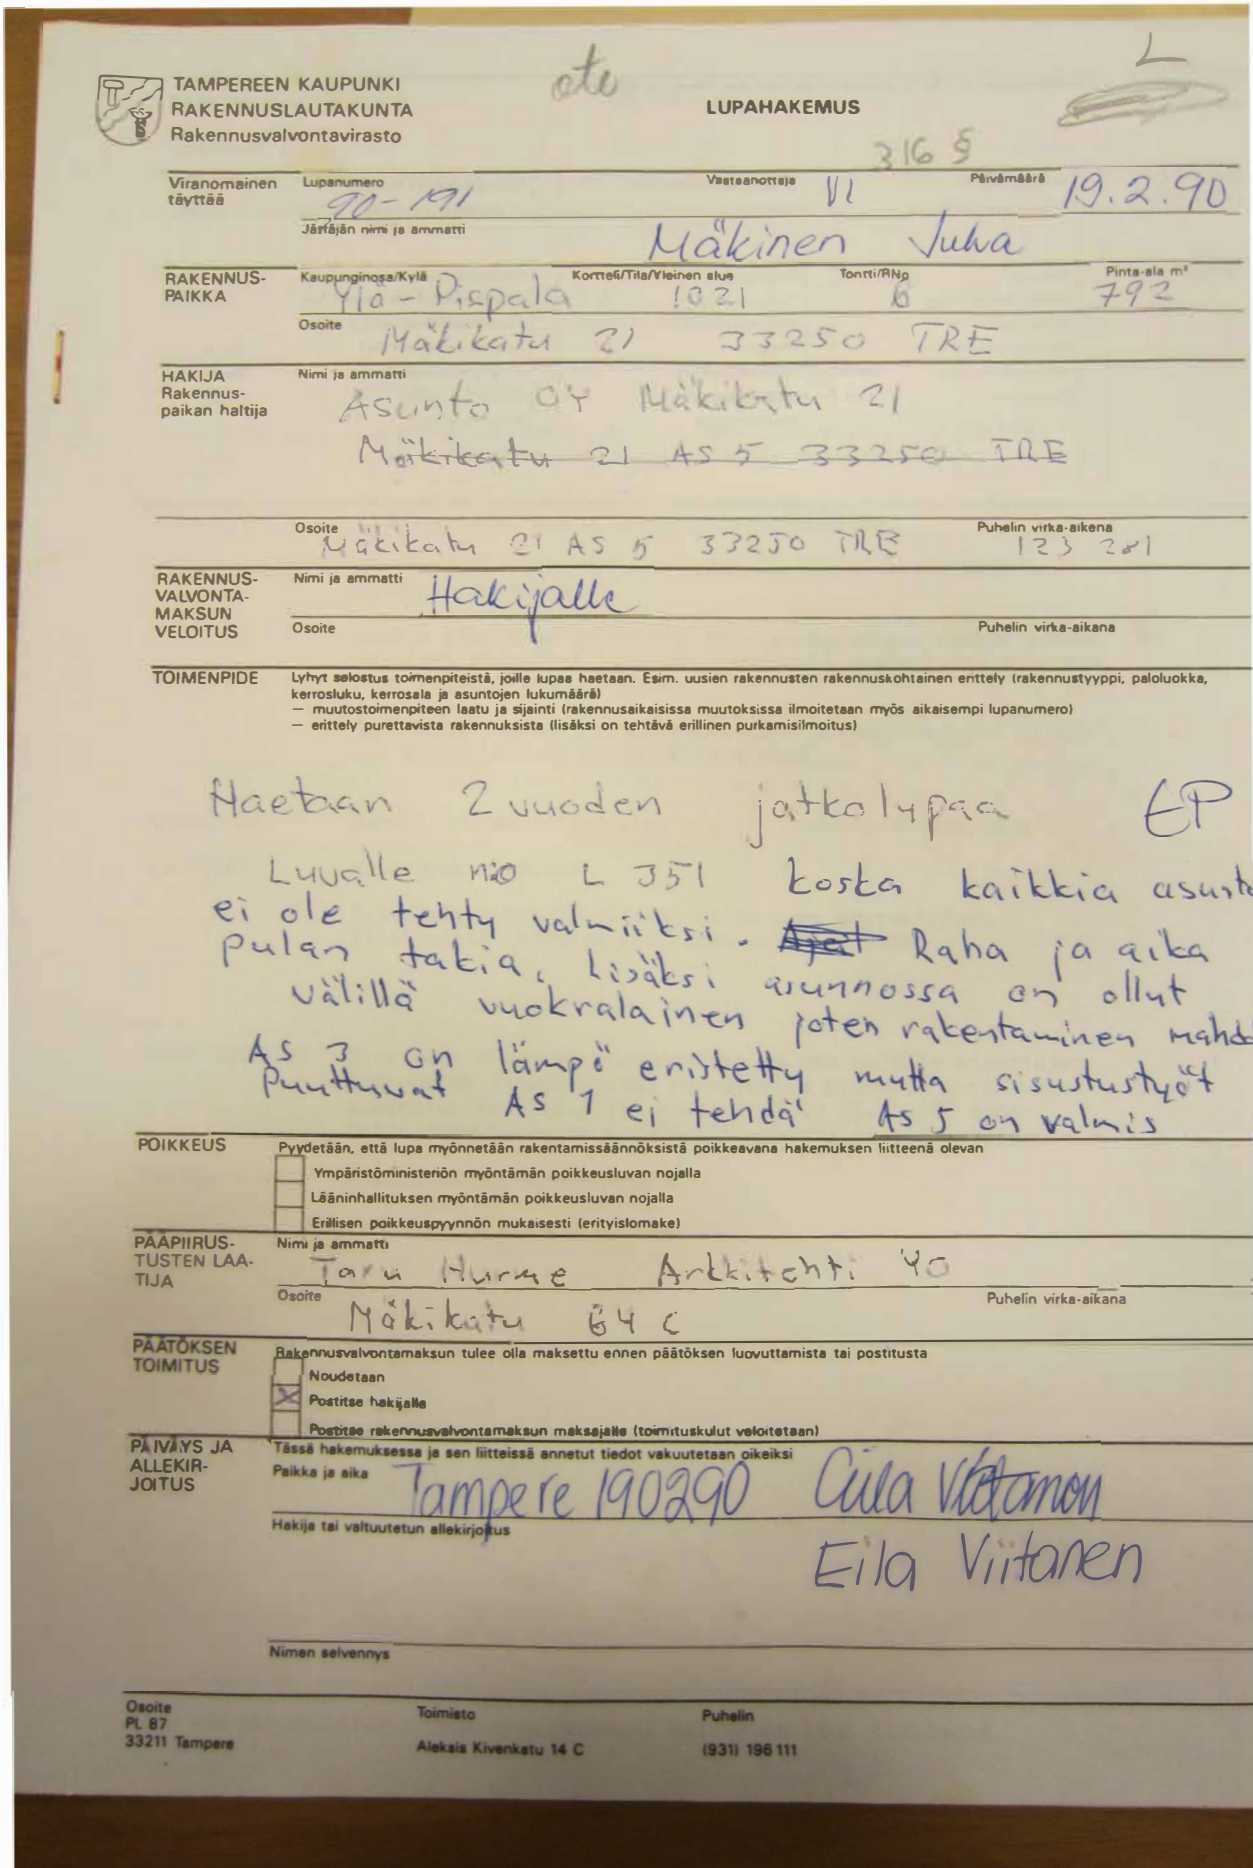 ote
L
TAMPEREEN KAUPUNKI
RAKENNUSLAUTAKUNTA
Rakennusvalvontavirasto
LUPAHAKEMUS
316 §
Viranomainen täyttää
Lupanumero
Vastaanottaja
Päivämäärä
90-191
VL
19.2.90
Järtäjän nimi ja ammatti
Mäkinen Juha
RAKENNUS-
PAIKKA
Kaupunginosa/Kylä
Kortteli/Tila/Yleinen alue
Tontti/RNo
Pinta-ala m²
Ylä-Pispala 1021 6 792
Osoite
Mäkikatu 21 33250 TRE
HAKIJA
Rakennus-
paikan haltija
Nimi ja ammatti
Asunto OY Mäkikatu 21
Mäkikatu 21 AS 5 33250 TRE
Osoite
Puhelin virka-aikena
Mäkikatu 21 AS 5 33250 TRE 123 281
RAKENNUS-
VALVONTA-
MAKSUN
VELOITUS
Nimi ja ammatti
Hakijalle
Osoite
Puhelin virka-aikana
TOIMENPIDE
Lyhyt selostus toimenpiteistä, joille lupaa haetaan. Esim. uusien rakennusten rakennuskohtainen erittely (rakennustyyppi, paloluokka,
kerrosluku, kerrosala ja asuntojen lukumäärä)
— muutostoimenpiteen laatu ja sijainti (rakennusaikaisissa muutoksissa ilmoitetaan myös aikaisempi lupanumero)
— erittely purettavista rakennuksista (lisäksi on tehtävä erillinen purkamisilmoitus)
Haetaan 2 vuoden jatkolupaa EP
Luvalle n:o L 351 koska kaikkia asunto
ei ole tehty valmiiksi. Ajat Raha ja aika
pulan takia, Lisäksi asunnossa on ollut
välillä vuokralainen joten rakentaminen mahdo
AS 3 on lämpö eristetty mutta sisustustyöt
Puuttuvat AS 1 ei tehdä AS 5 on valmis
POIKKEUS
Pyydetään, että lupa myönnetään rakentamissäännöksistä poikkeavana hakemuksen liitteenä olevan
Ympäristöministeriön myöntämän poikkeusluvan nojalla
Lääninhallituksen myöntämän poikkeusluvan nojalla
Erillisen poikkeuspyynnön mukaisesti (erityislomake)
PÄÄPIIRUS-
TUSTEN LAA-
TIJA
Nimi ja ammatti
Taru Hurme Arkkitehti YO
Osoite
Puhelin virka-aikana
Mäkikatu 64 C
PÄÄTÖKSEN
TOIMITUS
Rakennusvalvontamaksun tulee olla maksettu ennen päätöksen luovuttamista tai postitusta
Noudetaan
X Postitse hakijalle
Postitse rakennusvalvontamaksun maksajalle (toimituskulut veloitetaan)
PÄIVÄYS JA
ALLEKIR-
JOITUS
Tässä hakemuksessa ja sen liitteissä annetut tiedot vakuutetaan oikeiksi
Paikka ja aika
Tampere 190290 Eila Viitanen
Hakija tai valtuutetun allekirjoitus
Eila Viitanen
Nimen selvennys
Osoite
PL 87
33211 Tampere
Toimisto
Aleksis Kivenkatu 14 C
Puhelin
(931) 196 111